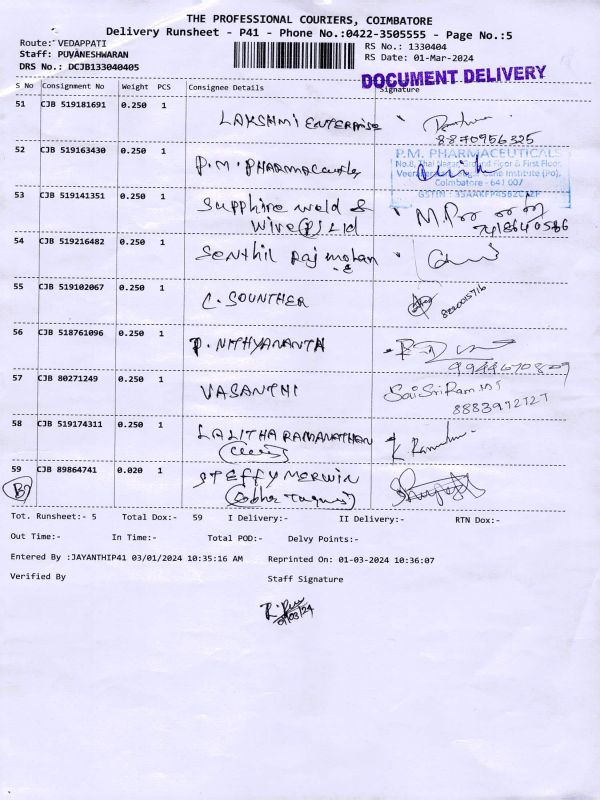 THE PROFESSIONAL COURIERS, COIMBATORE
Delivery Runsheet - P41 - Phone No.:0422-3505555 - Page No.:5
Route: VEDAPPATI
Staff: PUVANESHWARAN
DRS No.: DCJB133040405
RS No.: 1330404
RS Date: 01-Mar-2024
DOCUMENT DELIVERY
S No Consignment No Weight PCS Consignee Details Signature
51 CJB 519181691 0.250 1
LAKSHMI ENTERPRISE
8870956325
52 CJB 519163430 0.250 1
P.M. PHARMACEUTICALS
Coimbatore - 641 007
53 CJB 519141351 0.250 1
Supphire weld &
Wire (P) Ltd
54 CJB 519216482 0.250 1
Senthil Raj mohan
55 CJB 519102067 0.250 1
C. SOUNTHER
56 CJB 518761096 0.250 1
P. NITHYANANTA
57 CJB 80271249 0.250 1
VASANTHI
Sai Sri Ram
8883992727
58 CJB 519174311 0.250 1
LALITHA RAMANATHAN
59 CJB 89864741 0.020 1
STEFFY MERWIN
Tot. Runsheet:- 5 Total Dox:- 59 I Delivery:- II Delivery:- RTN Dox:-
Out Time:- In Time:- Total POD:- Delvy Points:-
Entered By :JAYANTHIP41 03/01/2024 10:35:16 AM Reprinted On: 01-03-2024 10:36:07
Verified By Staff Signature